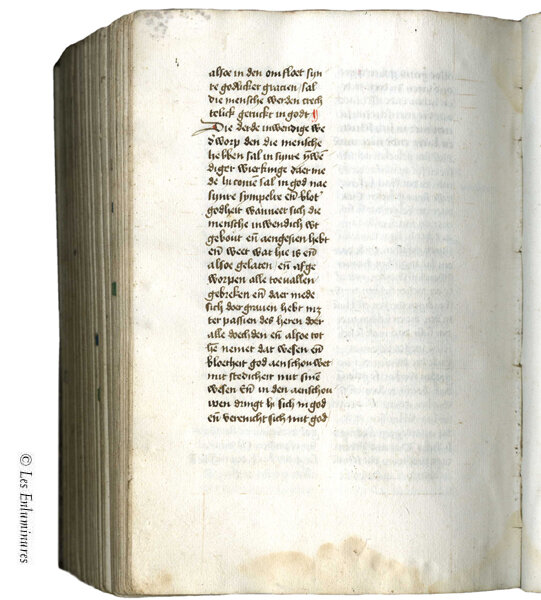 alsoe in den om floet syn
re godlicker gracien / sal
die mensche werden crech
telick getrict in godt ¶
Die derde inwendige we
dworp den die mensche
hebben sal in synre ynwe
diger wierkinge daer me
de hi comen sal in god nae
synre sympelre en̄ blot
godheit wanneer sich die
mensche inwendich wt
gebout en̄ aengesien hebt
en̄ weet wat hie is en̄
alsoe gelaten en̄ afge
worpen alle toevallen
gebreken en̄ daer mede
sich doer grauen hebt mz
ter passien des heren doer
alle doechden en̄ alsoe tot
hē nemet dat wesen en̄
bloetheit god aenschouwet
mit stedicheit mit sinē
wesen En̄ in den aenschou
wen dringt hi sich in god
en̄ verenicht sich mit god
© Les Enluminures